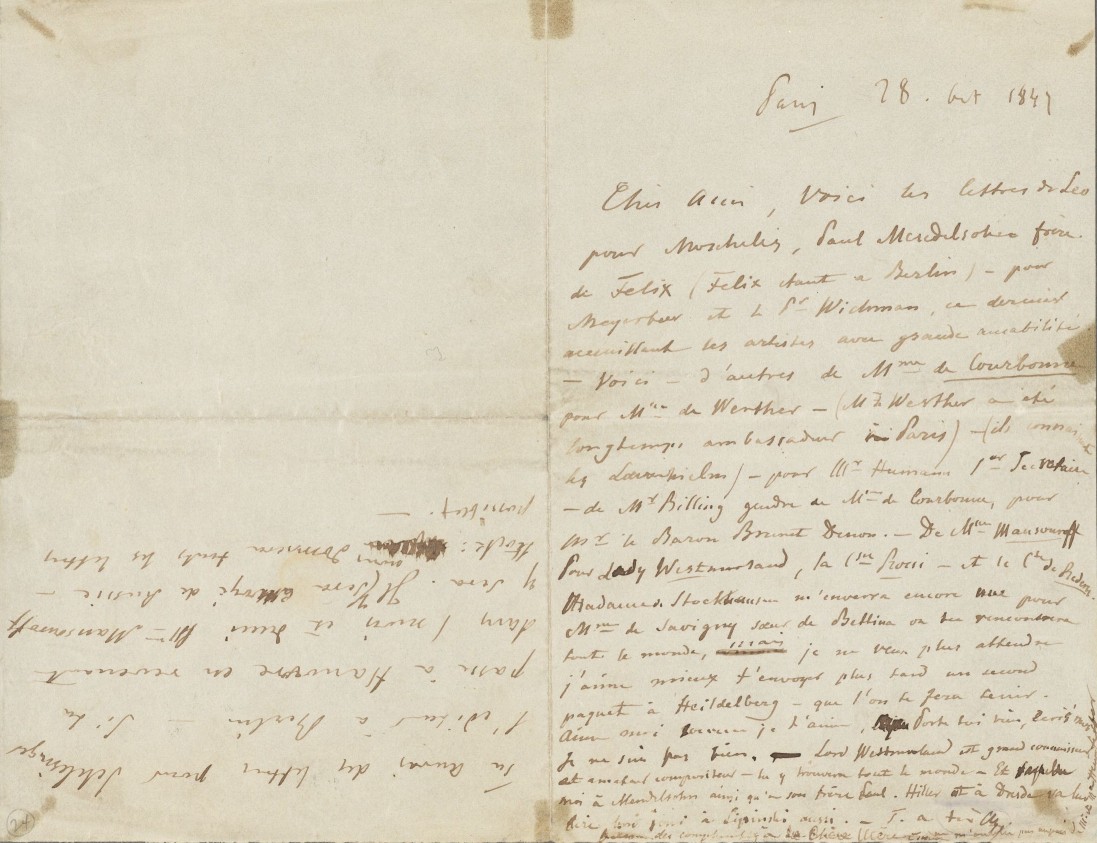 Paris 28. Oct 1847
Cher Ami, Voici les lettres de Leo
pour Moscheles, Paul Mendelsohn frère
de Felix (Felix étant a Berlin) – pour
Meyerbeer et le Pr Wichman, ce dernier
accueillant les artistes avec grande amabilité
– Voici – d'autres de Mme de Courbonne
pour Mme de Werther – (Mr de Werther a été
longtemps ambassadeur à Paris) – (ils
les Lövenhielm) – pour Mr Humann 1er Secretaire
– de Mr Billing gendre de Mme de Courbonne, pour
Mr le Baron Brunet Denon. – De Mme Mansouroff
Pour Lady Westmorland, la Ctsse Rossi – et le Cte de Redern.
Madame de Stockhausen m'enverra encore une pour
Mme de Savigny sœur de Bettina où tu rencontrera
tout le monde, mais je ne veux plus attendre
j'aime mieux t'envoyer plus tard un second
paquet à Heildelberg – que l'on te fera tenir.
Aime moi comme je t'aime, Porte toi bien, écris moi
Je ne suis pas bien. – Lord Westmorland est grand connaisseur
et amateur compositeur – tu y trouvera tout le monde – Et rapelle
moi à Mendelsohn ainsi qu'a son frère Paul. Hiller est à Dresde va lui
dire à Lipinski aussi. – T. a toi Ch
Tu auras des lettres pour Schlesinger
l'éditeur à Berlin – Si tu
passe à Hanovre en revenant
dans 1 mois et demi Mme Mansouroff
y sera. Il y sera envoyé de Russie –
Stock: vous donnera toutes les lettres
possibles. –
24